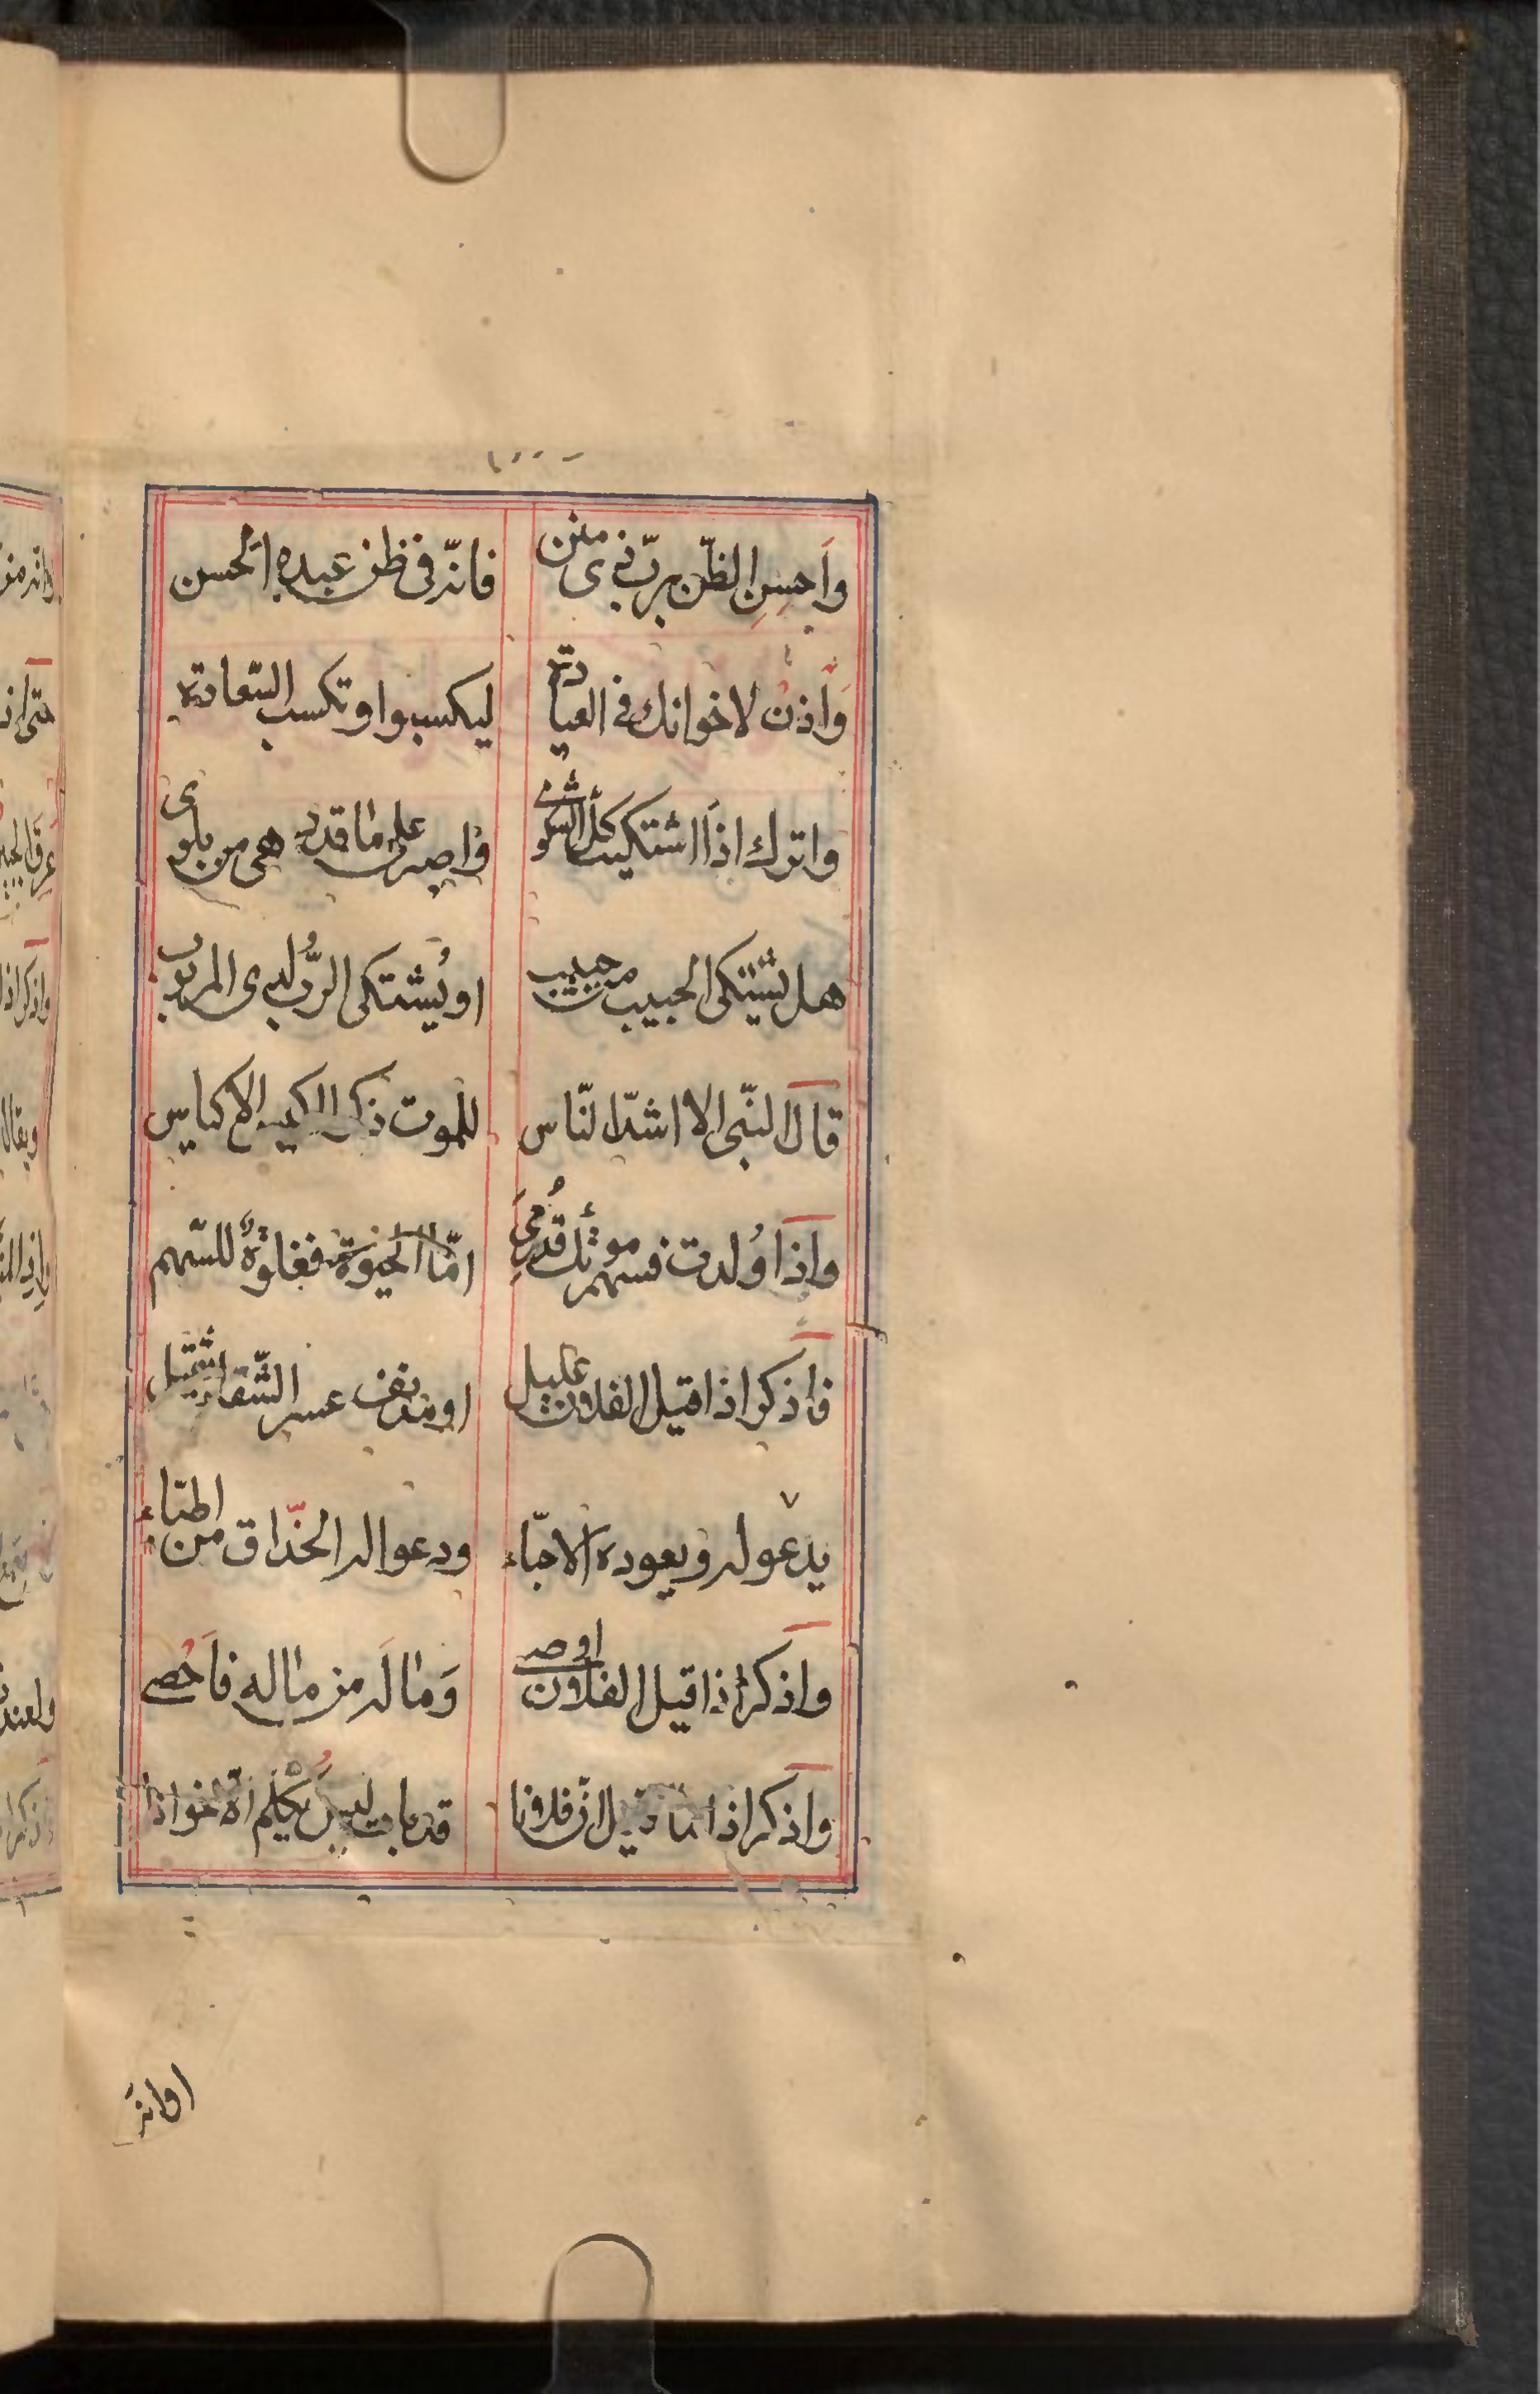 وَاَحسِنِ الظّن بربّ ذی منن فانّه فی ظن عبده الحسن
وَاْذنْ لاخوانك فی العیادة لیکسبوا وتکسب السّعادة
واترك اذا اشتکیت کلّ الشکوی واصبر علی ما قدر هی من بلوی
هل یشتکی الحبیب من حبیب او یُشتکی الربُّ لدی المربوب
قال النّبی الا اشدّ النّاس للموت ذکرا اکیس الاکیاس
واذا وُلدت فسهم موتك قد رُمِیَ امّا الحیوة فغلوةٌ للسّهم
فاذکر اذا قیل الفلان علیل او مدنف عسر الشّفاء ثقیل
یدعو له و یعوده الاحبّاء ودعوا له الحذّاق من اطبّاء
واذکر اذا قیل الفلان اوصی وَمَا لَه من ماله فاَحُصی
واذکر اذا ما قیل انّ فلانا قد بات لیس یُکلم الاخوانا